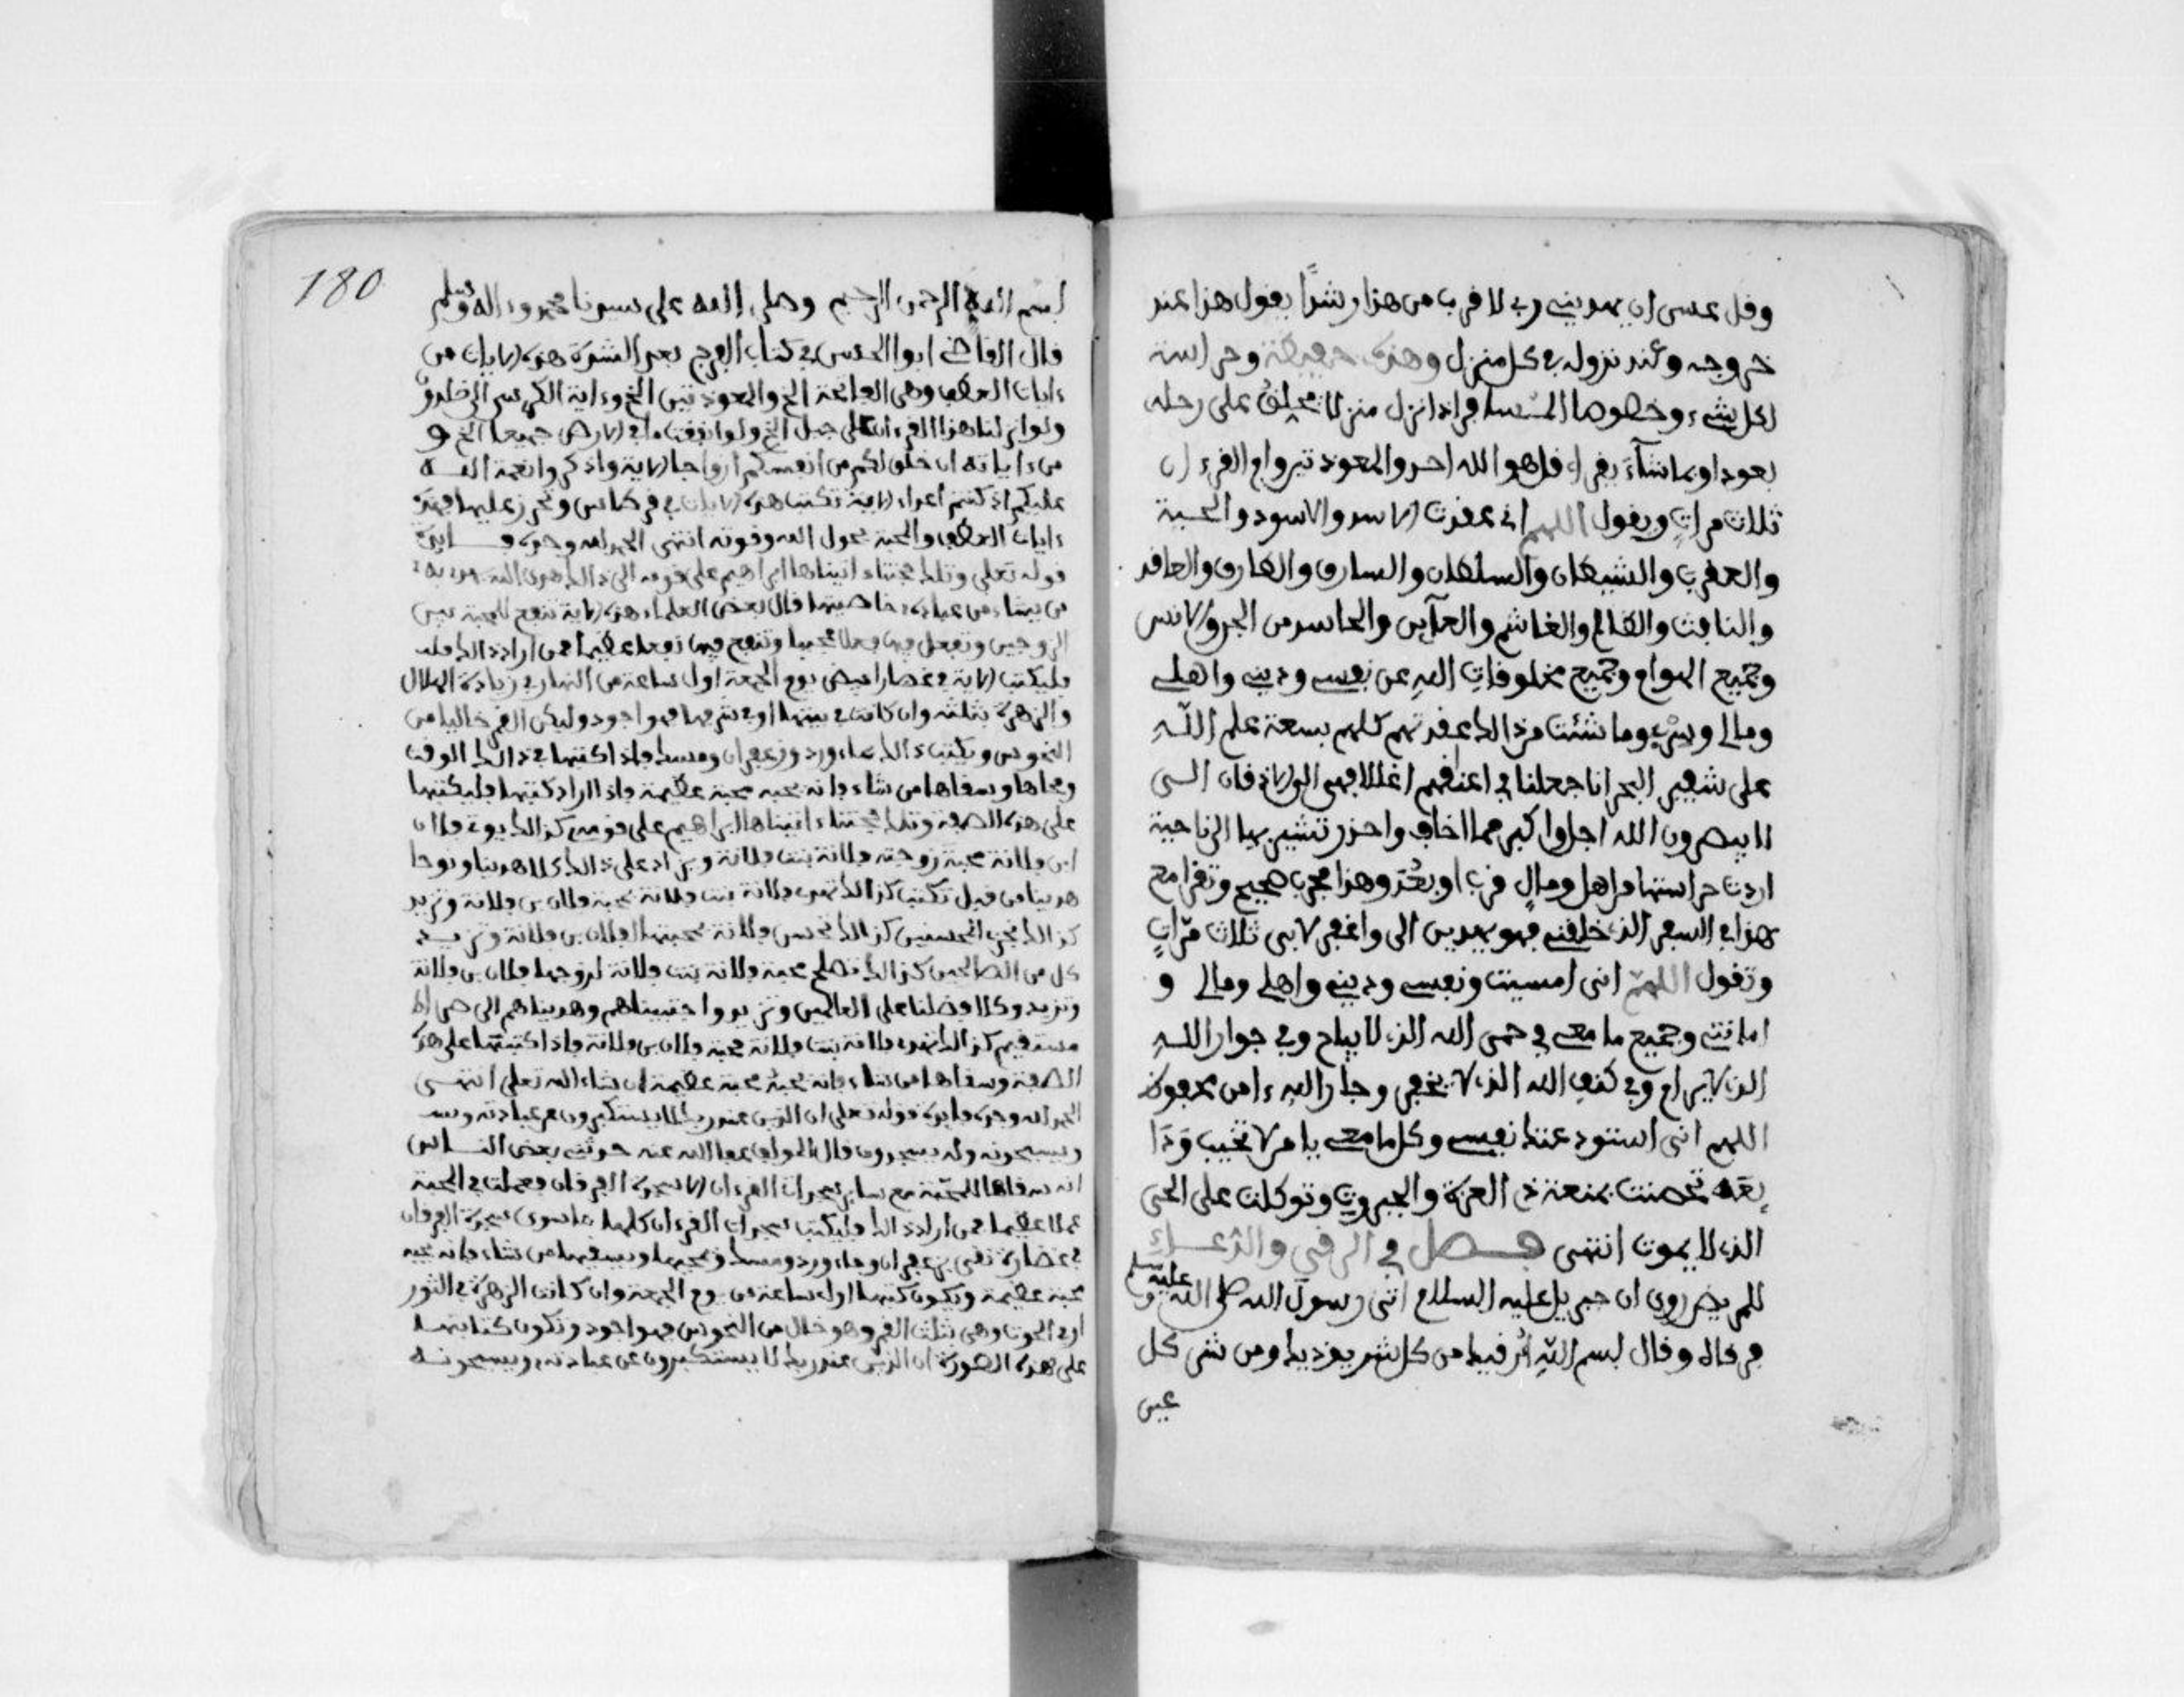 وقل عسى ان يهديني ربي لاقرب من هذا رشدًا يقول هذا عند
خروجه وعند نزوله في كل منزل وهذه حفيظة وحراسة
لكل شيء وخصوصا المسافر اذا نزل منزلا يحلق على رحله
بعود او بما شآء يقرأ قل هو الله احد والمعوذتين وام القرءان
ثلاث مراتٍ ويقول اللهم اني عقدت الاسد والاسود والحية
والعقرب والشيطان والسلطان والسارق والطارق والعاقد
والنافث والظالم والغاشم والعآين والحاسد من الجن والانس
وجميع الهوام وجميع مخلوقاتِ اللهِ عن نفسي وديني واهلي
ومالي وما شئت من ذالك عقدتهم كلهم بسعة علم اللّهِ
على شفير البحر انا جعلنا في اعناقهم اغلالا فهي الى الاذقان الى
لا يبصرون الله اجل واكبر مما اخاف واحذر تشير بها الى ناحية
اردت حراستها من اهل ومالٍ قرب او بَعُدَ وهذا مجرب صحيح وتقرأ مع
هذا في السفر الذي خلقني فهو يهدين الى واغفر لابي ثلاث مرّاتٍ
وتقول اللهمّ انى امسيت ونفسي وديني واهلي ومالي و
امانتي وجميع ما معي في حمى الله الذي لا يباح وفي جوار اللهِ
الذي لا يرام وفي كنف الله الذي لا يخفر وجار اللهِ ءامن محفوظ
اللهم انى استودعتك نفسي وكل ما معي يا من لا تخيب وَدَآ
ئعَه تحصنت بمنعة ذي العزة والجبروت وتوكلت على الحى
الذي لا يموت انتهى فصل في الرقى والدُعــاءِ
للمريض روي ان جبريل عليه السلام اتى رسول الله صلى الله عليه وسلم
فرقاه وقال بسم اللّهِ اُرقيك من كل شيء يوذيك ومن شر كل
عين
180
بسم اللهِ الرحمن الرحيم وصلى الله على سيدنا محمد وءاله وسلم
قال القاضي ابو الحسن في كتاب الفرج بعد الشدة هذه الايات من
ءايات العطف وهى الفاتحة الخ والمعوذتين الخ وءاية الكرسي الى خلدون
ولو انزلنا هذا القرءان على جبل الخ ولو انفقت ما في الارض جميعا الخ و
من ءاياته ان خلق لكم من انفسكم ازواجا الاية واذكروا نعمة اللــه
عليكم اذ كنتم اعداء الاية تكتب هذه الايات في قرطاس وتحرز عليها فهذه
ءايات العطف والمحبة بحول الله وقوته انتهى الحمد لله وحده فــايدة
قوله تعلى وتلك حجتنا ءاتيناها ابراهيم على قومه الى ذالك هدى الله يهدي به
من يشاء من عباده خاصيتها قال بعض العلماء هذه الاية تنفع للمحبة بين
الزوجين وتفعل فيها فعلا عجيبا وتنفع فيها نفعا عظيما فمن اراد ذالك
فليكتب الاية في غضار ابيض يوم الجمعة اول ساعة من النهار في زيادة الهلال
والزهرة بثلثه وان كانت في بيتها او في شرفها فهو اجود وليكن القمر خاليا من
النحوس ويكتب ذالك بماء ورد وزعفران ومسك فاذا كتبها في ذالك الوقت
ومحاها وسقاها من شاء فانه يحبه محبة عظيمة فاذا اراد كتبها فليكتبها
على هذه الصفة وتلك حجتنا ءاتيناها ابراهيم على قومه كذالك يوتى فلان
ابن فلانة محبة زوجته فلانة بنت فلانة ويزاد على ذالك كلا هدينا ونوحا
هدينا من قبل تكتب كذالك تهدى فلانة بنت فلانة محبة فلان بن فلانة وتزيد
كذالك نجزي المحسنين كذالك تحسن فلانة بمحبتها لفلان بن فلانة وتزيــد
كل من الصالحين كذالك تصلح محبة فلانة بنت فلانة لزوجها فلان بن فلانة
وتزيد وكلا فضلنا على العالمين وتزيد واجتبيناهم وهديناهم الى صراط
مستقيم كذالك تهدى فلانة بنت فلانة محبة فلان بن فلانة فاذا كتبتها على هذه
الصفة وسقاها من شاء فانه يحبه محبة عظيمة ان شاء الله تعلى انتهــى
الحمد لله وحده فايدة قوله تعلى ان الذين عند ربك لا يستكبرون عن عبادته ويسـ
ويسبحونه وله يسجدون قال المولف عفا الله عنه حدثني بعض النــاس
انه سقاها للمحبّة مع ساير سجدات القرءان الا سجدة الفرقان فعملت في المحبة
عملا عظيما فمن اراد ذالك فليكتب سجدات القرءان كلها ما سوى سجدة الفرقان
في غضارة نقى بزعفران وماء ورد ومسك ويمحيها ويسقيها من شاء فانه يحبه
محبة عظيمة ويكون كتبها اول ساعة من يوم الجمعة وان كانت الزهرة في الثور
او في الحوت وهى بثلث القمر وهو خال من النحوس فهو اجود وتكون كتابتهــا
على هذه الصورة ان الذين عند ربك لا يستكبرون عن عبادته ويسبحونــه